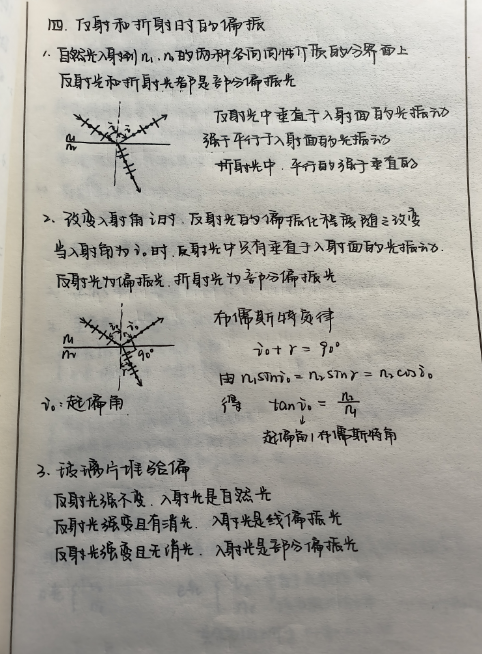 四. 反射和折射时的偏振
1. 自然光入射到n₁, n₂的两种各向同性介质的分界面上
反射光和折射光都是部分偏振光
i i
n₁
n₂
反射光中垂直于入射面的光振动
强于平行于入射面的光振动
折射光中, 平行的强于垂直的
2. 改变入射角i时, 反射光的偏振化程度随之改变
当入射角为i₀时, 反射光中只有垂直于入射面的光振动.
反射光为偏振光, 折射光为部分偏振光
i₀ i₀
n₁
n₂
90°
r
布儒斯特定律
i₀+r=90°
由 n₁sini₀=n₂sinr=n₂cosi₀
i₀:起偏角
得 tani₀=n₂/n₁
↓
起偏角/布儒斯特角
3. 玻璃片堆验偏
反射光强不变, 入射光是自然光
反射光强变且有消光, 入射光是线偏振光
反射光强变且无消光, 入射光是部分偏振光